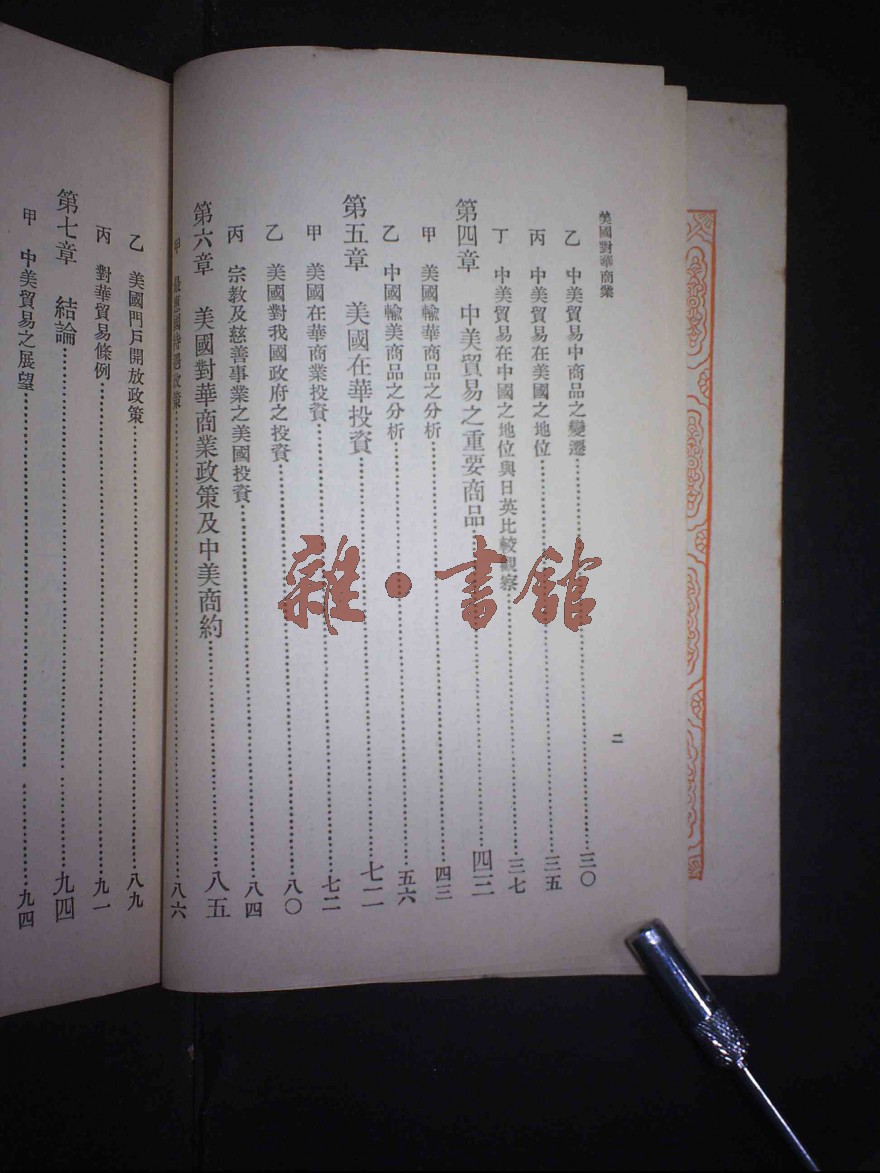 美國對華商業
乙 中美貿易中商品之變遷……三〇
丙 中美貿易在美國之地位……三五
丁 中美貿易在中國之地位與日英比較觀察……三七
第四章 中美貿易之重要商品……四三
甲 美國輸華商品之分析……四三
乙 中國輸美商品之分析……五六
第五章 美國在華投資……七二
甲 美國在華商業投資……七二
乙 美國對我國政府之投資……八〇
丙 宗教及慈善事業之美國投資……八四
第六章 美國對華商業政策及中美商約……八五
甲 最惠國待遇政策……八六
二
乙 美國門戶開放政策……八九
丙 對華貿易條例……九一
第七章 結論……九四
甲 中美貿易之展望……九四
雜·書館